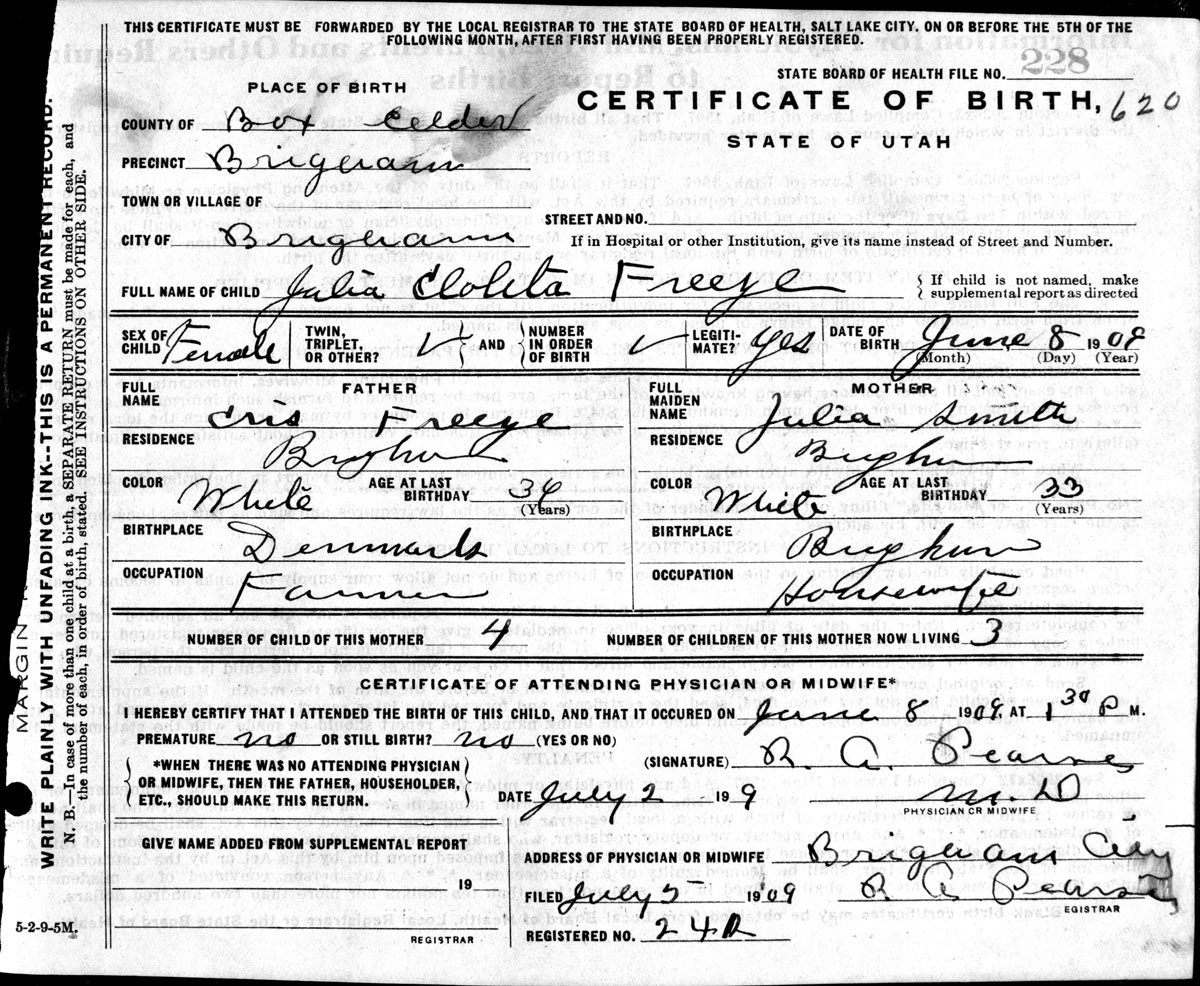 THIS CERTIFICATE MUST BE FORWARDED BY THE LOCAL REGISTRAR TO THE STATE BOARD OF HEALTH, SALT LAKE CITY. ON OR BEFORE THE 5TH OF THE
FOLLOWING MONTH, AFTER FIRST HAVING BEEN PROPERLY REGISTERED.
STATE BOARD OF HEALTH FILE NO. 228
PLACE OF BIRTH
CERTIFICATE OF BIRTH, 620
STATE OF UTAH
COUNTY OF Box Elder
PRECINCT Brigham
TOWN OR VILLAGE OF
STREET AND NO.
CITY OF Brigham
If in Hospital or other Institution, give its name instead of Street and Number.
FULL NAME OF CHILD Julia Freeze
{ If child is not named, make
supplemental report as directed
SEX OF CHILD Female
TWIN, TRIPLET, OR OTHER?
AND
NUMBER IN ORDER OF BIRTH
LEGITIMATE? Yes
DATE OF BIRTH June 8 1909
(Month) (Day) (Year)
FATHER
FULL NAME Freeze
RESIDENCE Brigham
COLOR White
AGE AT LAST BIRTHDAY 36
(Years)
BIRTHPLACE Denmark
OCCUPATION Farmer
MOTHER
FULL MAIDEN NAME Julia Smith
RESIDENCE Brigham
COLOR White
AGE AT LAST BIRTHDAY 33
(Years)
BIRTHPLACE Brigham
OCCUPATION Housewife
NUMBER OF CHILD OF THIS MOTHER 4
NUMBER OF CHILDREN OF THIS MOTHER NOW LIVING 3
CERTIFICATE OF ATTENDING PHYSICIAN OR MIDWIFE*
I HEREBY CERTIFY THAT I ATTENDED THE BIRTH OF THIS CHILD, AND THAT IT OCCURED ON June 8 1909 AT 1 30 P M.
PREMATURE no OR STILL BIRTH? no (YES OR NO)
*WHEN THERE WAS NO ATTENDING PHYSICIAN
OR MIDWIFE, THEN THE FATHER, HOUSEHOLDER,
ETC., SHOULD MAKE THIS RETURN.
(SIGNATURE) R. A. Pearse
July 2 19 9 M. D
PHYSICIAN OR MIDWIFE
GIVE NAME ADDED FROM SUPPLEMENTAL REPORT
19
REGISTRAR
ADDRESS OF PHYSICIAN OR MIDWIFE Brigham City
FILED July 5 1909 R A Pearse
REGISTRAR
REGISTERED NO.
5-2-9-5M.
MARGIN
WRITE PLAINLY WITH UNFADING INK--THIS IS A PERMANENT RECORD.
B. In case of more than one child at a birth, a SEPARATE RETURN must be made for each, and
the number of each, in order of birth, stated. SEE INSTRUCTIONS ON OTHER SIDE.